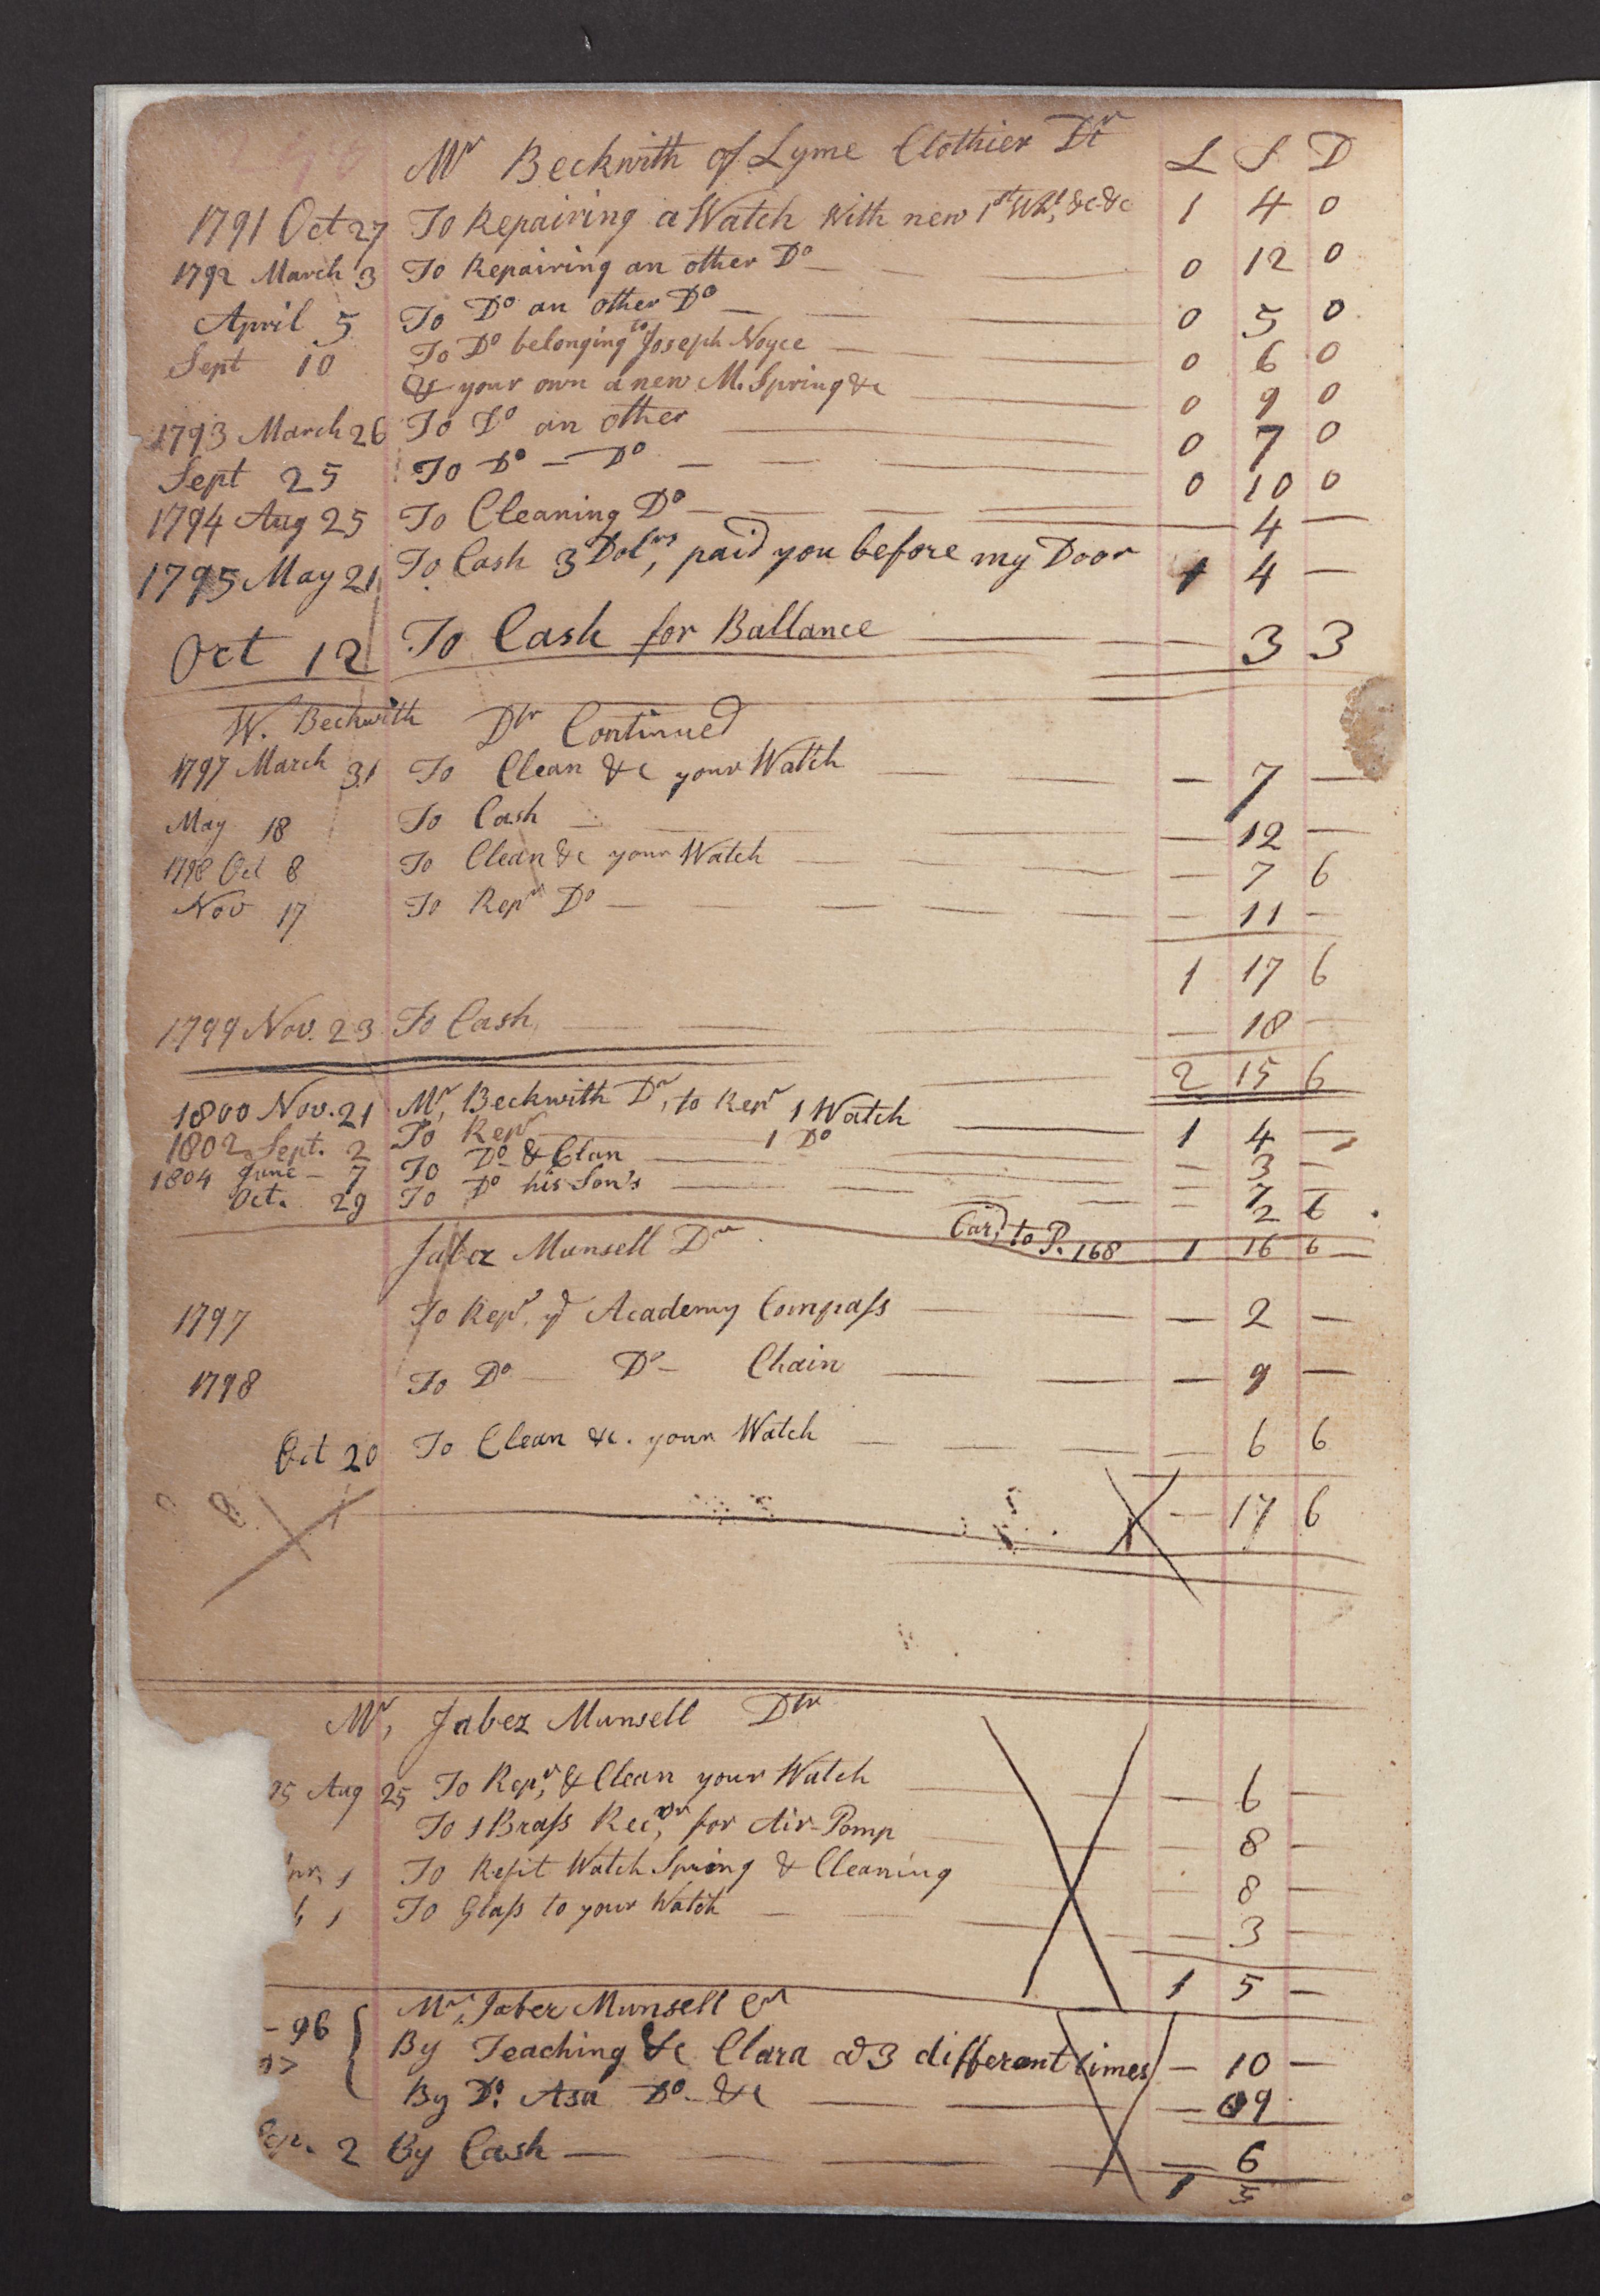 Mr Beckwith of Lyme Clothier Dr L S D
1791 Oct 27 To Repairing a Watch with new 1st Whl, &c &c 1 4 0
1792 March 3 To Repairing an other Do 0 12 0
April 5 To Do an other Do 0 5 0
Sept 10 To Do belonging to Joseph Noyce 0 6 0
& your own a new M. Spring &c 0 9 0
1793 March 26 To Do an other 0 7 0
Sept 25 To Do — Do 0 10 0
1794 Aug 25 To Cleaning Do — 4 —
1795 May 21 To Cash 3 Dolrs, paid you before my Door 1 4 —
Oct 12 To Cash for Ballance — 3 3
W. Beckwith Dtr Continued
1797 March 31 To Clean &c your Watch — 7 —
May 18 To Cash — 12 —
1798 Oct 8 To Clean &c your Watch — 7 6
Nov 17 To Repr Do — 11 —
1 17 6
1799 Nov. 23 To Cash, — 18 —
2 15 6
1800 Nov. 21 Mr, Beckwith Dr, to Repr 1 Watch 1 4 —
1802 Sept. 2 To Repr 1 Do — 3 —
1804 June — 7 To Do & Clan — 7
Oct. 29 To Do his Son's — 2 6
Card, to P. 168 1 16 6
Jabez Munsell Dr
1797 To Repr. ye Academy Compass — 2 —
1798 To Do — Do — Chain — 9 —
Oct 20 To Clean &c. your Watch — 6 6
— 17 6
Mr, Jabez Munsell Dtr
95 Aug 25 To Repr, & Clean your Watch — 6 —
To 1 Brass Recvr, for Air-Pomp — 8 —
1 To Refit Watch Spring & Cleaning — 8 —
1 To Glass to your Watch — 3 —
1 5 —
Mr, Jabez Munsell Cr
- 96 By Teaching &c Clara @ 3 different times — 10 —
By Do. Asa Do — &c — 09
2 By Cash — — 6
1 5